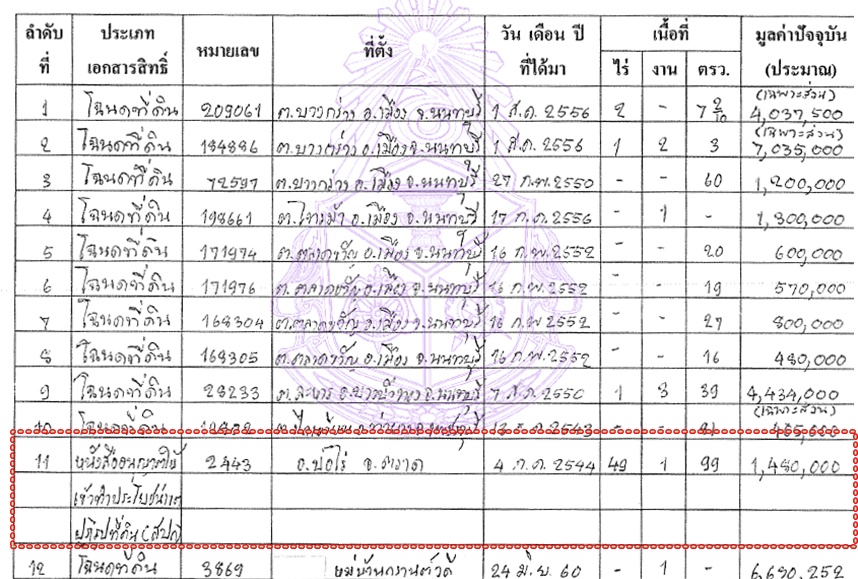 ลำดับที่ ประเภทเอกสารสิทธิ์ หมายเลข ที่ตั้ง วัน เดือน ปี ที่ได้มา เนื้อที่ ไร่ งาน ตรว. มูลค่าปัจจุบัน (ประมาณ)
(เฉพาะส่วน)
1 โฉนดที่ดิน 209061 ต.บางกร่าง อ.เมือง จ.นนทบุรี 1 ส.ค. 2556 2 - 7 2/10 4,037,500
(เฉพาะส่วน)
2 โฉนดที่ดิน 184886 ต.บางกร่าง อ.เมือง จ.นนทบุรี 1 ส.ค. 2556 1 2 3 7,035,000
3 โฉนดที่ดิน 72597 ต.บางกร่าง อ.เมือง จ.นนทบุรี 27 ก.พ. 2550 - - 60 1,200,000
4 โฉนดที่ดิน 198661 ต.ไทรม้า อ.เมือง จ.นนทบุรี 17 ก.ค. 2556 - 1 - 1,300,000
5 โฉนดที่ดิน 171974 ต.ตลาดขวัญ อ.เมือง จ.นนทบุรี 16 ก.พ. 2552 - - 20 600,000
6 โฉนดที่ดิน 171976 ต.ตลาดขวัญ อ.เมือง จ.นนทบุรี 16 ก.พ. 2552 - - 19 570,000
7 โฉนดที่ดิน 168304 ต.ตลาดขวัญ อ.เมือง จ.นนทบุรี 16 ก.พ 2552 - - 27 800,000
8 โฉนดที่ดิน 168305 ต.ตลาดขวัญ อ.เมือง จ.นนทบุรี 16 ก.พ. 2552 - - 16 480,000
9 โฉนดที่ดิน 28233 ต.ละหาร อ.บางบัวทอง จ.นนทบุรี 7 ส.ค. 2550 1 3 39 4,434,000
(เฉพาะส่วน)
10 โฉนดที่ดิน
11 หนังสืออนุญาตให้ 2443 อ.บ่อไร่ จ.ตราด 4 ก.ค. 2544 49 1 99 1,480,000
เข้าทำประโยชน์ในเขต
ปฏิรูปที่ดิน (สปก)
12 โฉนดที่ดิน 3869 24 มิ.ย. 60 - 1 - 6,690,252